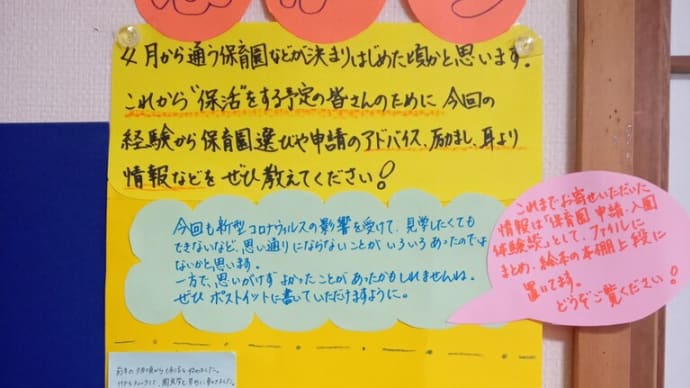 4月から通う保育園などが決まりはじめた頃かと思います。
これから"保活"をする予定の皆さんのために 今回の
経験から保育園選びや申請のアドバイス、励まし、耳より
情報などを ぜひ教えてください!
今回も新型コロナウィルスの影響を受けて、見学したくても
できないなど、思い通りにならないことが いろいろあったのでは
ないかと思います。
一方で、思いがけず よかったことが あったかもしれませんね。
ぜひ ポストイットに書いていただけますように。
これまでお寄せいただいた
情報は「保育園 申請・入園
体験談」として、ファイルに
まとめ、絵本の本棚上段に
置いてます。
どうぞご覧ください!